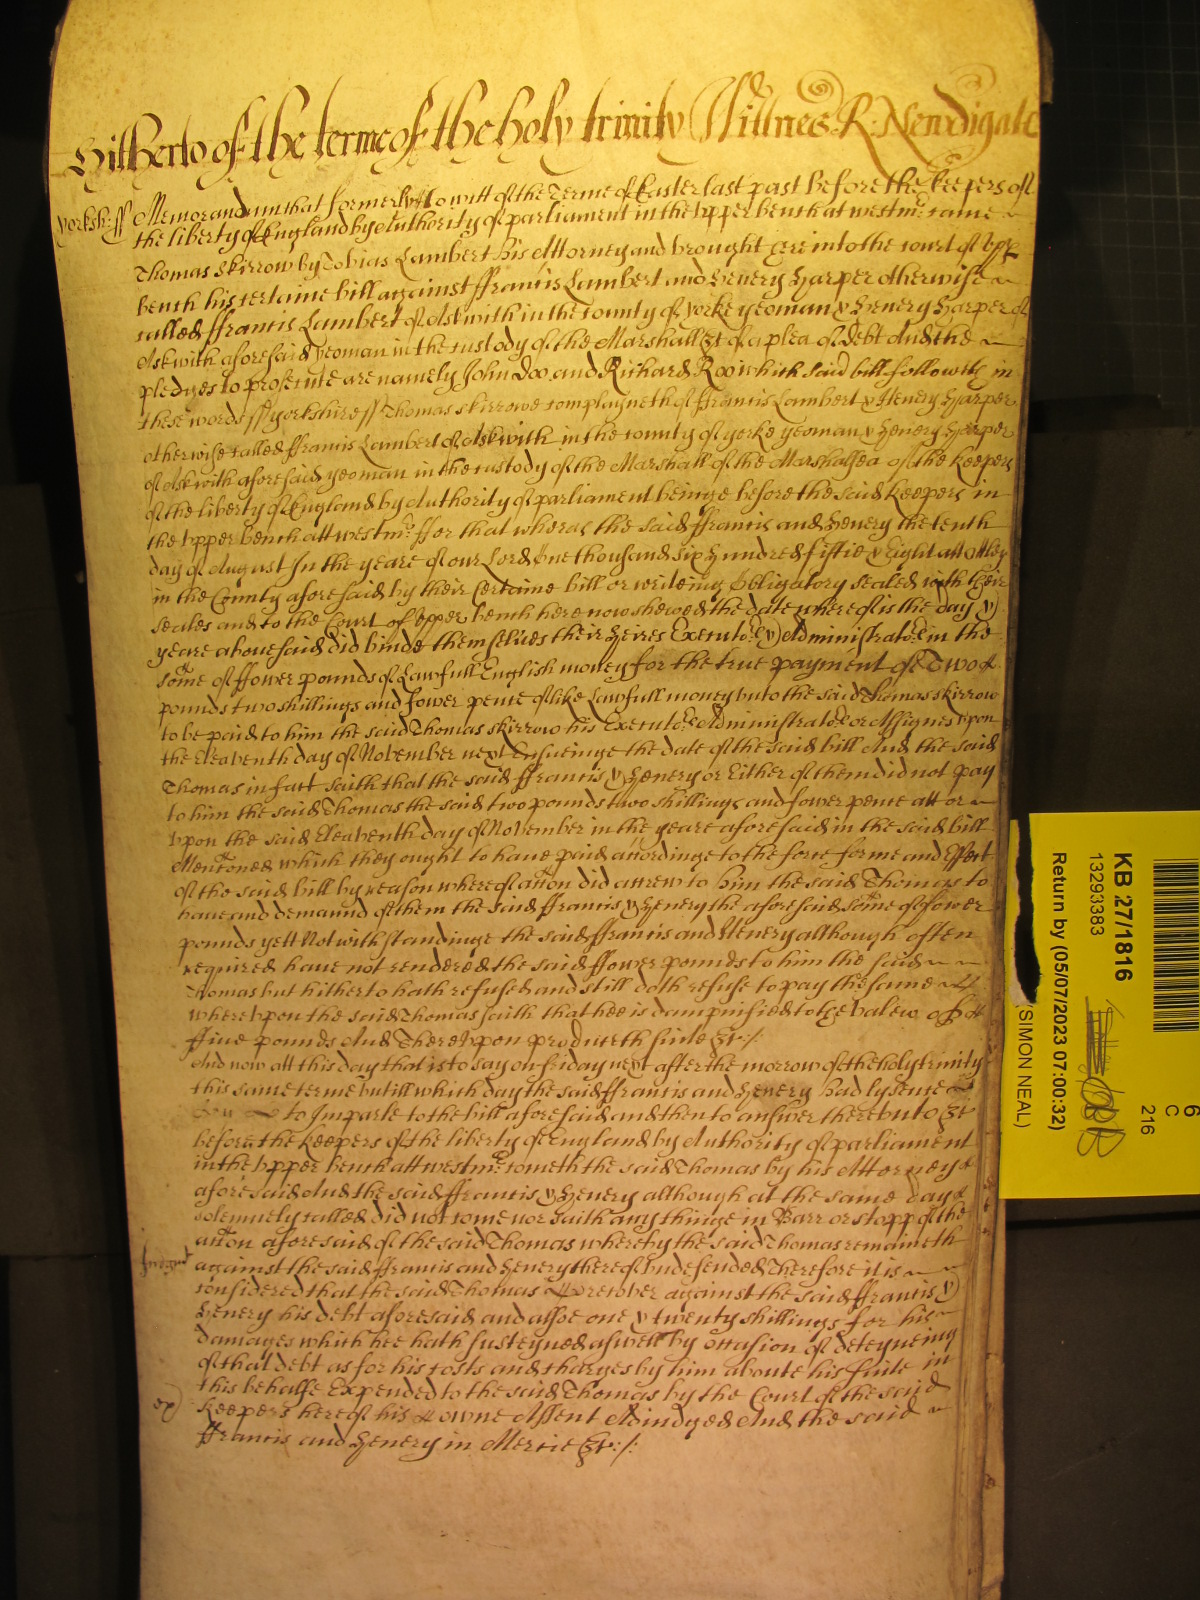 Hitherto of the terme of the holy trinity Wittnes R: Newdigate
Yorksh: ss Memorandum that formerly to witt of the Terme of Easter last past before the keepers of
the liberty of England by Authority of parliament in the vpper bench at westmr: came
Thomas Skirrow by Tobias Lambert his Attorney and brought here into the court of vpper
bench his certaine bill against ffrancis Lambert and Henery Harper otherwise
called ffrancis Lambert of Askwith in the County of yorke yeoman & Henery Harper of
Askwith aforesaid yeoman in the custody of the Marshall &c of a plea of debt And the
pledges to prosecute are namely John Doo and Richard Roo which said bill followeth in
these words ss yorkshire ss Thomas skirrowe complayneth of ffrancis Lambert & Henery Harper
otherwise called ffrancis Lambert of Askwith in the county of yorke yeoman & Henery Harper
of Askwith aforesaid yeoman in the custody of the Marshall of the Marshalsea of the keepers
of the liberty of England by Authority of parliament beinge before the said keepers in
the vpper bench att westmr: ffor that wheras the said ffrancis and Henery the tenth
day of August In the yeare of our Lord One thousand six Hundred fiftie & Eight att Otley
in the County aforesaid by their certaine bill or writeing Obligatory sealed with their
seales and to the Court of vpper bench here now shewed the date whereof is the day &
yeare abouesaid did binde themselues their Heires Executors & Administrators in the
some of ffower pounds of Lawfull English money for the true payment of Two
pounds two shillings and fower pence of like Lawfull money vnto the said Thomas skirrow
to be paid to him the said Thomas skirrow his Executors Administrators or Assignes vpon
the Eleaventh day of November next Ensueinge the date of the said bill And the said
Thomas in fact saith that the said ffrancis & Henery or Either of them did not pay
to him the said Thomas the said two pounds two shillings and fower pence att or
vpon the said Eleaventh day of November in the yeare aforesaid in the said bill
Mencõned which they ought to haue paid accordinge to the force forme and Effect
of the said bill by reason whereof accõn did accrew to him the said Thomas to
haue and demaund of them the said ffrancis & Henery the aforesaid some of fower
pounds yett Notwithstandinge the said ffrancis and Henery although often
required have not rendered the said ffower pounds to him the said
Thomas but hitherto hath refused and still doth refuse to pay the same
wherevpon the said Thomas saith that hee is dampnified to the valew of
ffiue pounds And Therevpon produceth suite &c:/:
And now att this day that is to say on friday next after the morrow of the holy trinity
this same terme vntill which day the said ffrancis and Henery had lycence
to Imparle to the bill aforesaid and then to answer therevnto &c
before the keepers of the liberty of England by Authority of parliament
in the vpper bench att westmr: cometh the said Thomas by his Attorney
aforesaid And the said ffrancis & Henery although at the same day
solemnely called did not come nor saith any thinge in Barr or stopp of the
accõn aforesaid of the said Thomas whereby the said Thomas remaineth
Judgmt against the said ffrancis and Henery thereof vndefended Therefore it is
considered that the said Thomas recover against the said ffrancis &
Henery his debt aforesaid and alsoe one & twenty shillings for his
damages which hee hath susteyned aswell by occasion of deteyneing
of that debt as for his costs and charges by him aboute his suite in
this behalfe Expended to the said Thomas by the Court of the said
Keepers here of his owne Assent Adiudged And the said
ffrancis and Henery in Mercie &c:/:
KB 27/1816
13293383
Return by (05/07/2023 07:00:32)
(SIMON NEAL)
6
C
216